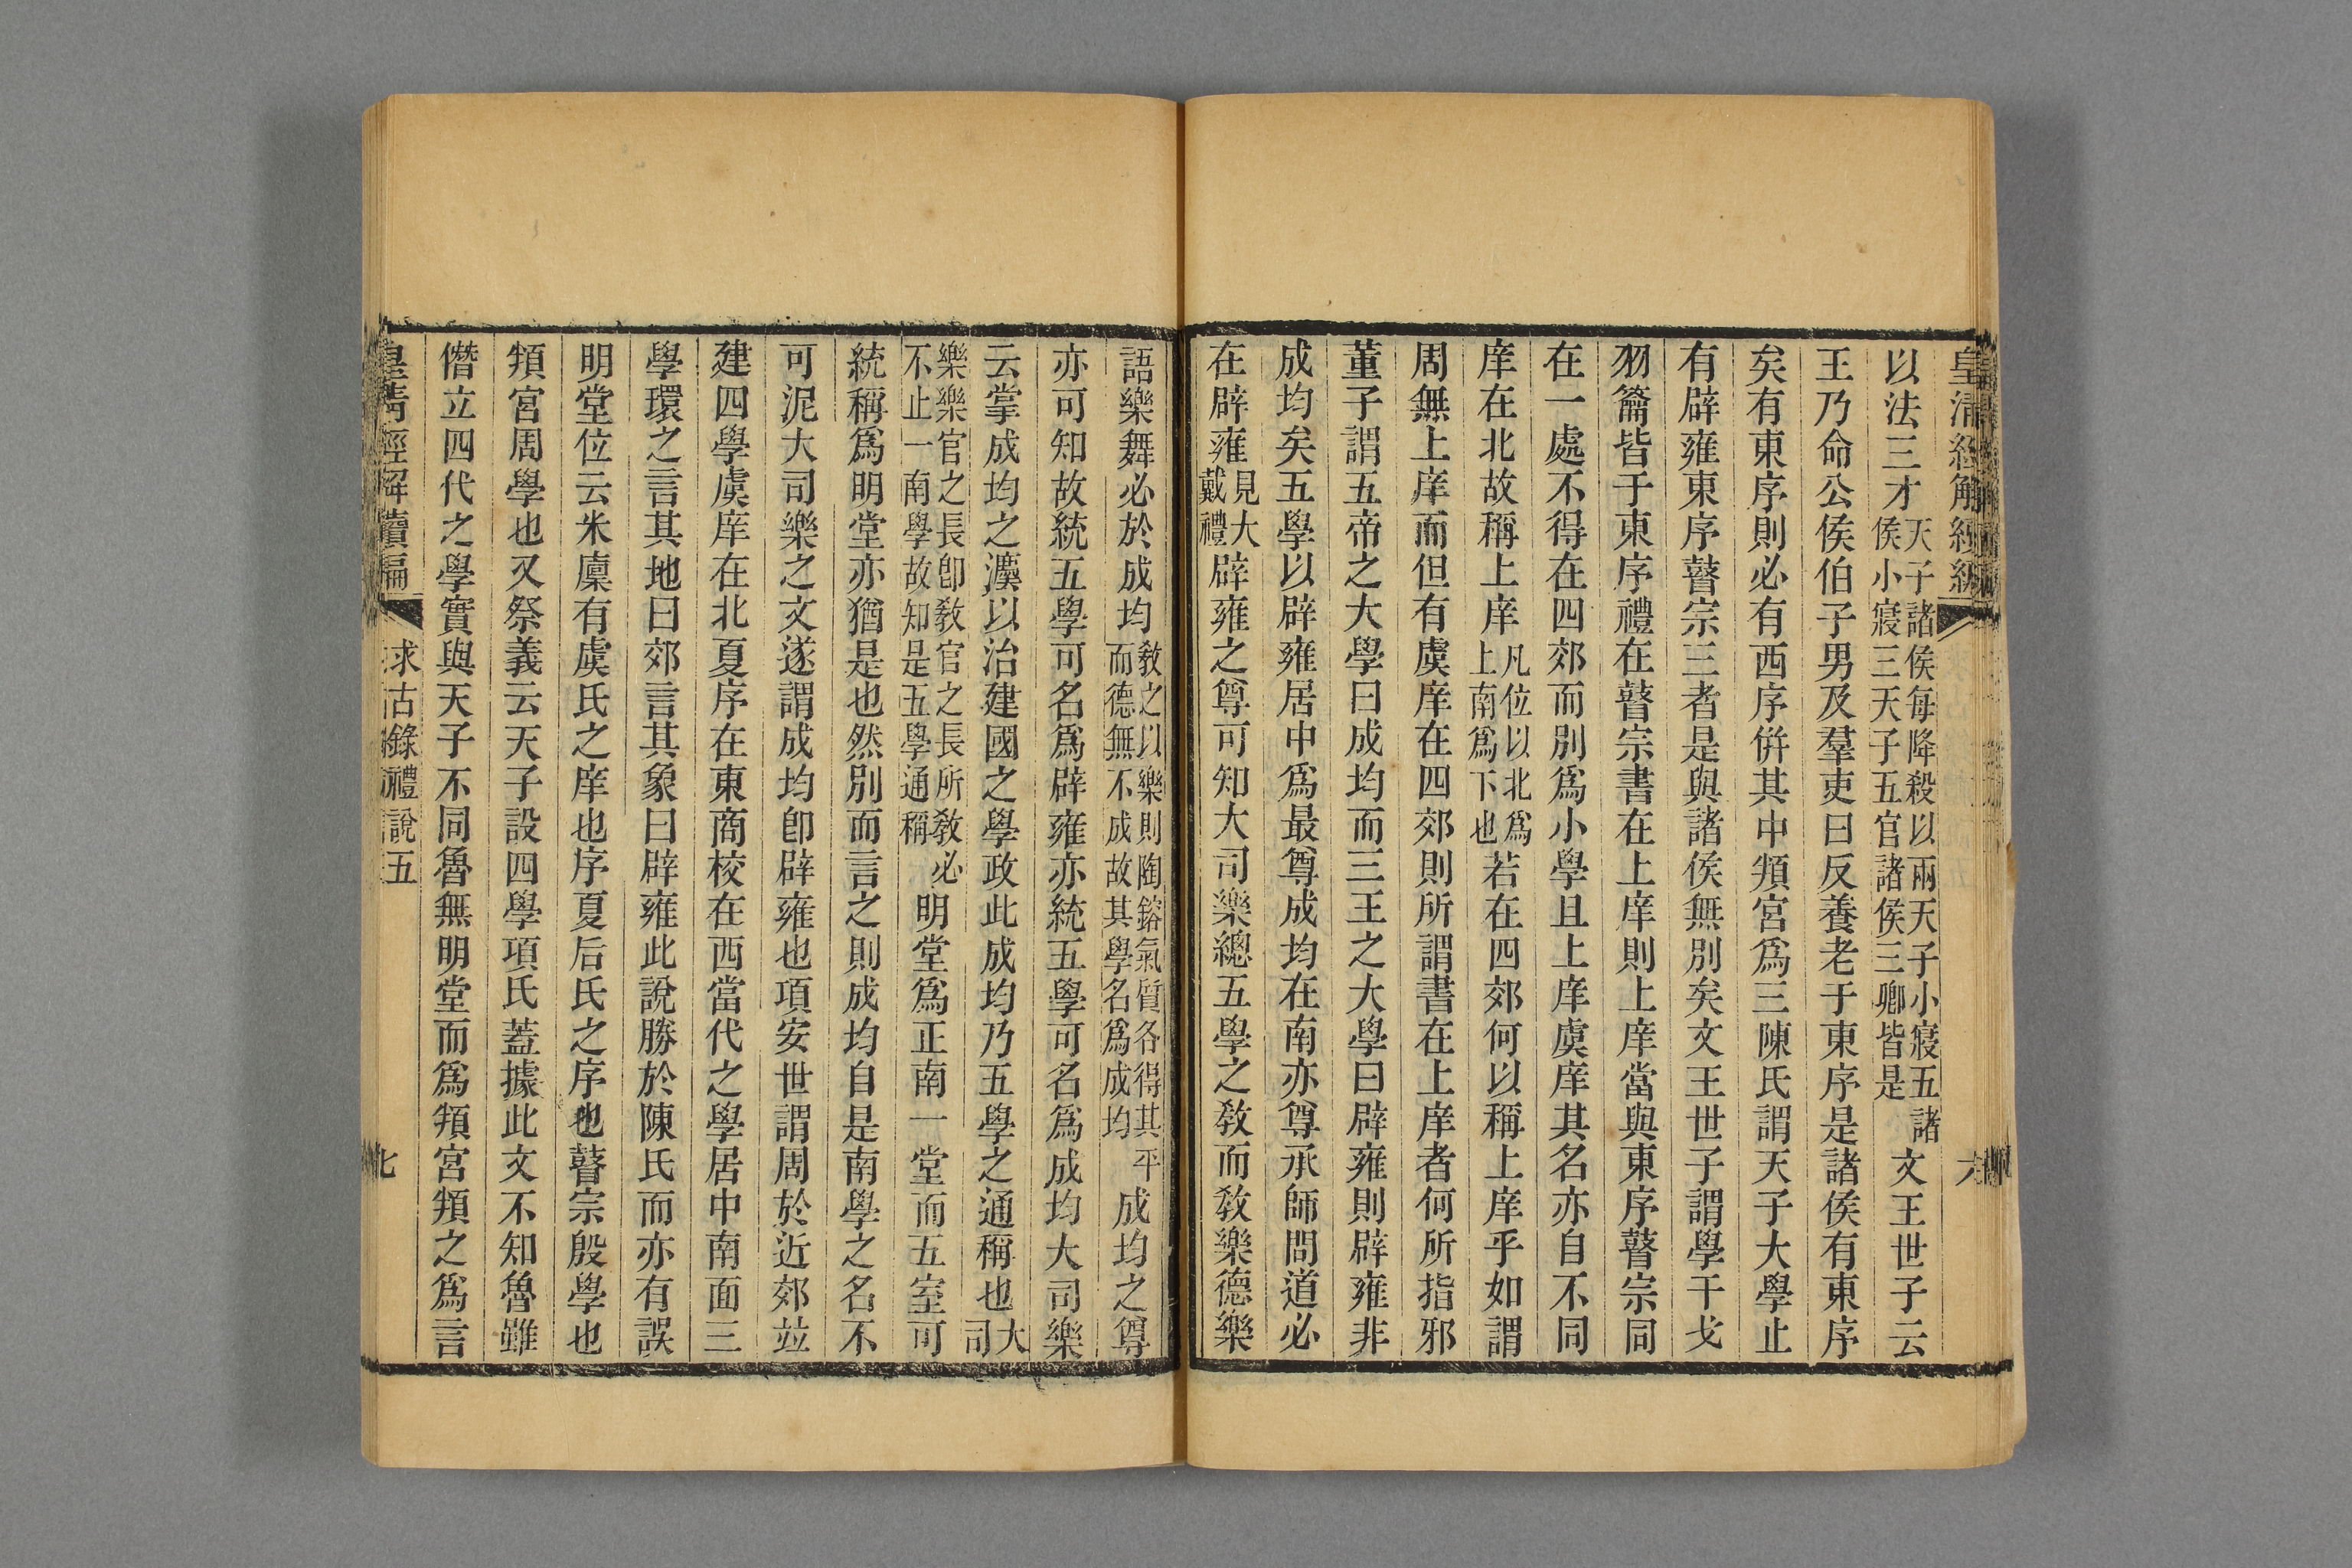 皇清經解續編
六
以法三才天子諸侯每降殺以兩天子小寢五諸侯小寢三天子五官諸侯三卿皆是文王世子云
王乃命公侯伯子男及羣吏曰反養老于東序是諸侯有東序
矣有東序則必有西序倂其中頖宮爲三陳氏謂天子大學止
有辟雍東序瞽宗三者是與諸侯無別矣文王世子謂學干戈
羽籥皆于東序禮在瞽宗書在上庠則上庠當與東序瞽宗同
在一處不得在四郊而別爲小學且上庠虞庠其名亦自不同
庠在北故稱上庠凡位以北爲上南爲下也若在四郊何以稱上庠乎如謂
周無上庠而但有虞庠在四郊則所謂書在上庠者何所指邪
董子謂五帝之大學曰成均而三王之大學曰辟雍則辟雍非
成均矣五學以辟雍居中爲最尊成均在南亦尊承師問道必
在辟雍見大戴禮辟雍之尊可知大司樂總五學之敎而敎樂德樂
語樂舞必於成均敎之以樂則陶鎔氣質各得其平而德無不成故其學名爲成均成均之尊
亦可知故統五學可名爲辟雍亦統五學可名爲成均大司樂
云掌成均之灋以治建國之學政此成均乃五學之通稱也大司
樂樂官之長卽敎官之長所敎必不止一南學故知是五學通稱明堂爲正南一堂而五室可
統稱爲明堂亦猶是也然別而言之則成均自是南學之名不
可泥大司樂之文遂謂成均卽辟雍也項安世謂周於近郊竝
建四學虞庠在北夏序在東商校在西當代之學居中南面三
學環之言其地曰郊言其象曰辟雍此說勝於陳氏而亦有誤
明堂位云米廩有虞氏之庠也序夏后氏之序也瞽宗殷學也
頖宮周學也又祭義云天子設四學項氏蓋據此文不知魯雖
僭立四代之學實與天子不同魯無明堂而爲頖宮頖之爲言
皇清經解續編
求古錄禮說五
七